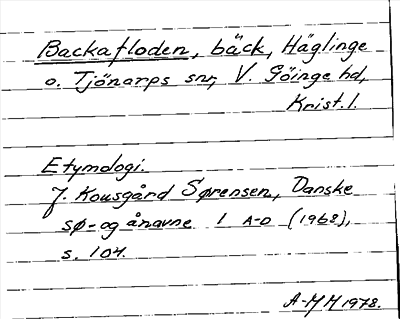 Backafloden, bäck, Häglinge
o. Tjörnarps snr, V. Göinge hd,
Krist. l.
Etymologi.
J. Kousgård Sørensen, Danske
sø- og ånavne 1 A-D (1968),
s. 104.
A-MM 1978.